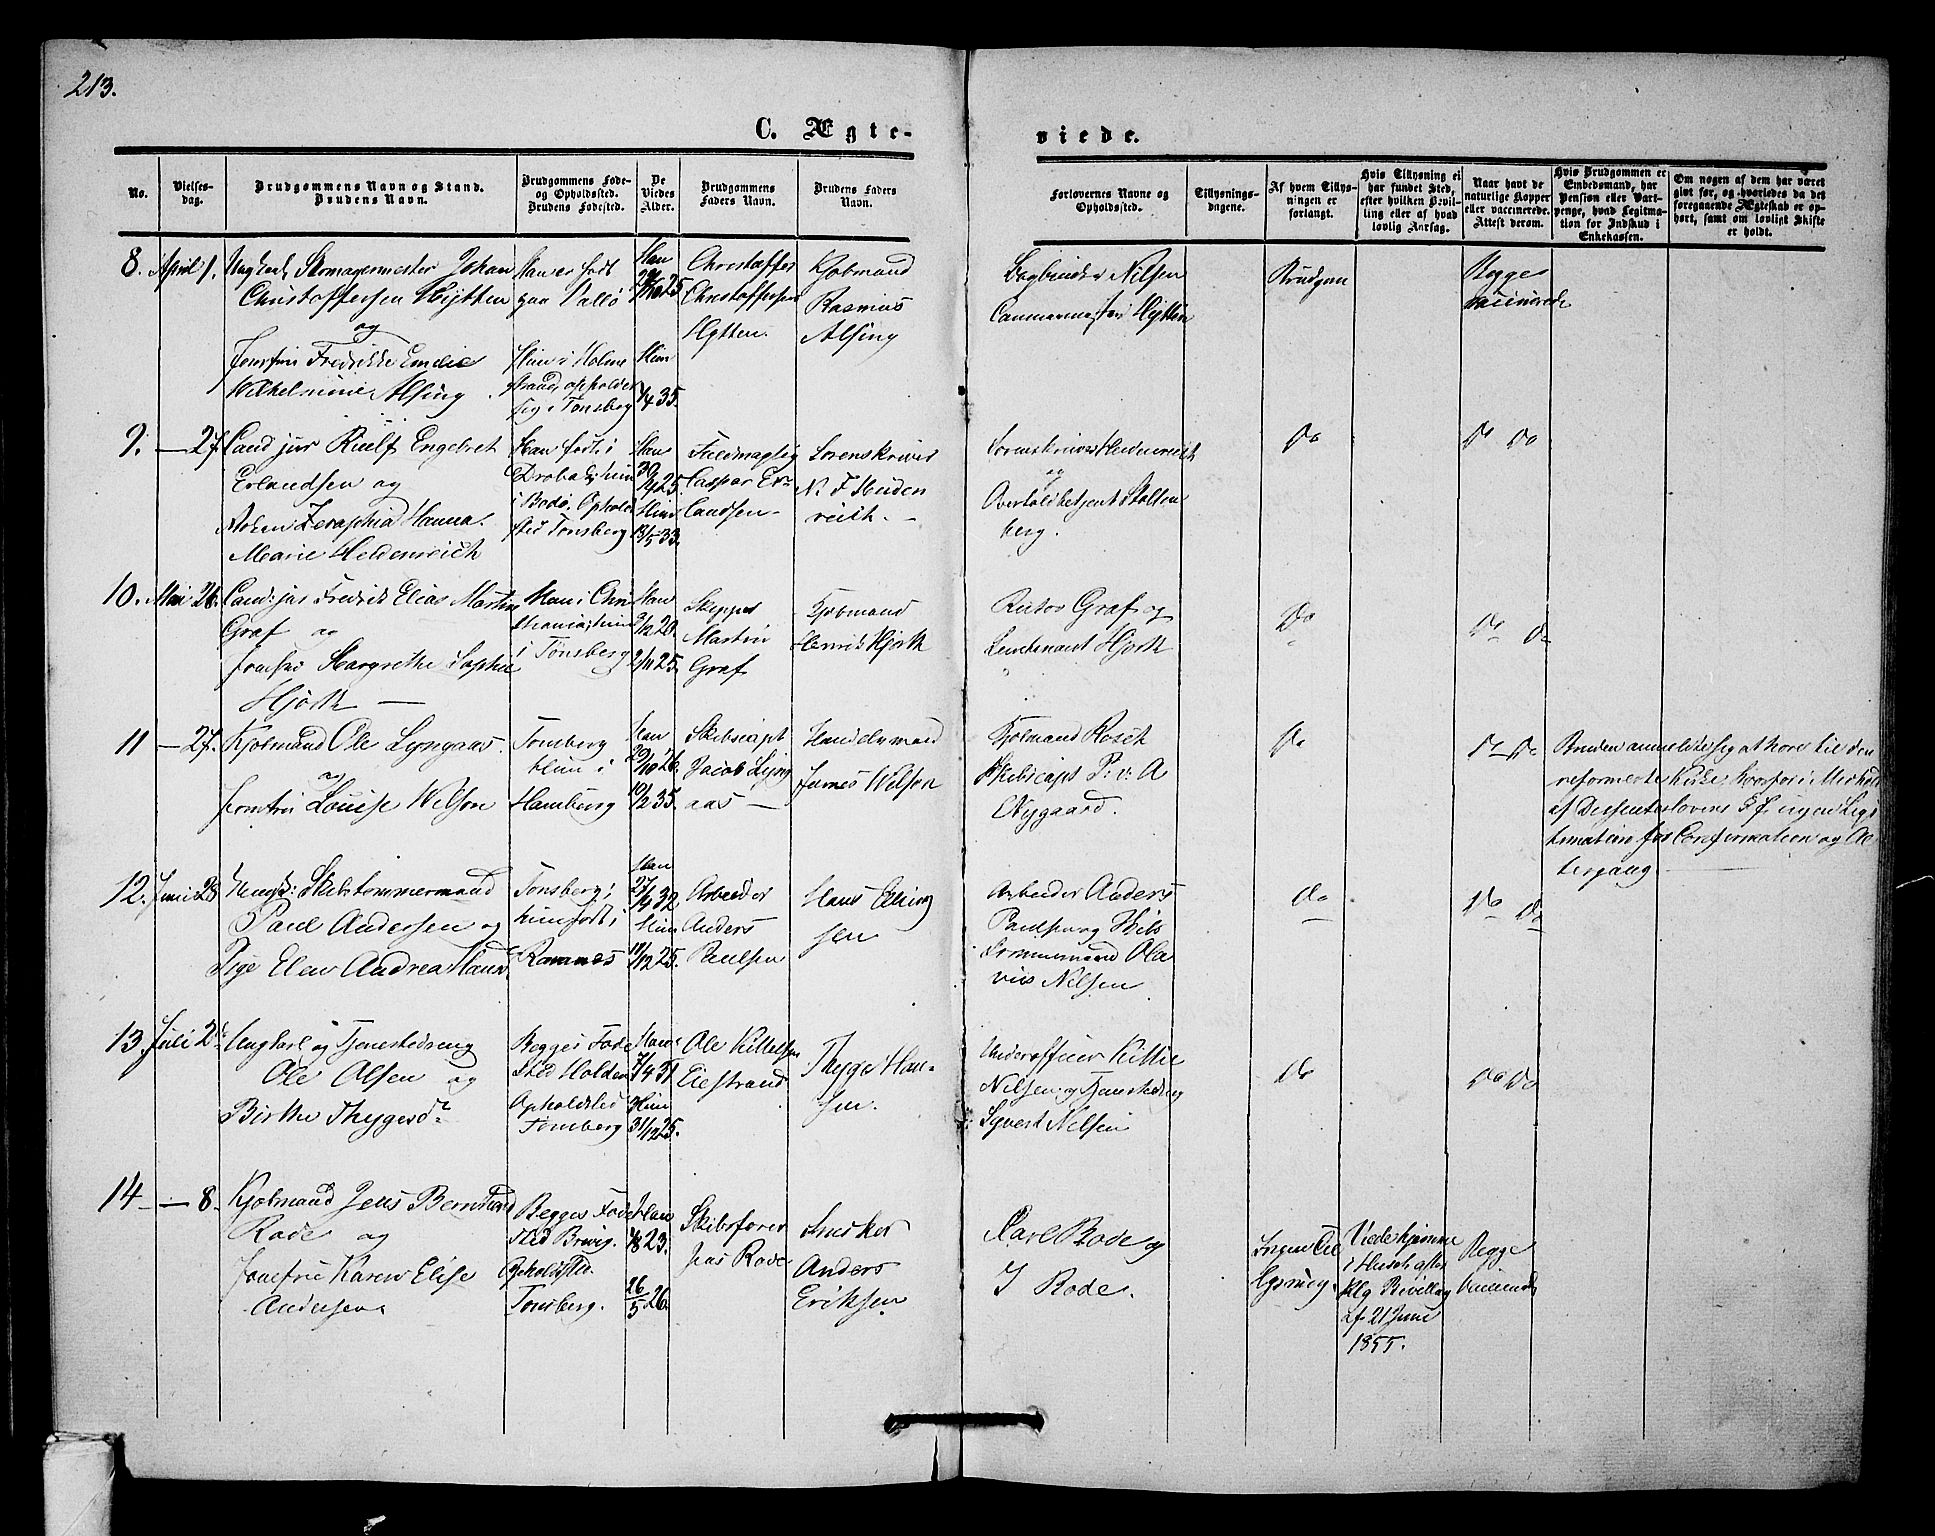 213.
C. Ægte-
viede.
No.
Vielses-
dag.
Brudgommens Navn og Stand.
Brudens Navn.
Brudgommens Føde-
og Opholdssted.
Brudens Fødested.
De
Viedes
Alder.
Brudgommens
Faders Navn.
Brudens Faders
Navn.
Forlovernes Navne og
Opholdssted.
Tillysnings-
dagene.
Af hvem Tillys-
ningen er
forlangt.
Hvis Tillysning ei
har fundet Sted,
efter hvilken Bevil-
ling eller af hvad
lovlig Aarsag.
Naar havt de
naturlige Kopper
eller vaccinerede.
Attest derom.
Hvis Brudgommen er
Embedsmand, har
Pension eller Vart-
penge, hvad Legitima-
tion for Indskud i
Enkekassen.
Om nogen af dem har været
givt før, og hvorledes da det
foregaaende Ægteskab er op-
hørt, samt om lovligt Skifte
er holdt.
8. April 1.
Ungkarl Skomagermester Johan
Christoffersen Hytten
og
Jomfru Fredrikke Emilie
Wilhelmine Alsing
Han er født
paa Vallø
Hun i Holme
strand, opholder
sig i Tønsberg
Han
/10 25
Hun
/4 35.
Christoffer
Christoffersen
Hytten.
Kjøbmand
Rasmus
Alsing
Bogbinder Nilsen
Hytten
Brudgom
Begge
vaccinerede
9. — 27.
Cand jur Engebret
Erlandsen og
Zeraphia Hanna
Marie Heidenreich
Han født i
Drøbak, hun
i Bodø. Ophold
sted Tønsberg
Han
30/4 25.
Hun
13/5 33.
Fuldmægtig
Caspar Er-
landsen
Sorenskriver
N. F. Heiden
reich. —
Sorenskriver Heidenreich
og
Overtoldbetjent Stolten
berg.
Do
Do Do
10. Mai 26.
Cand: jur Fredrik Elias Martin
Graf og
Jomfru Margrethe Sophie
Hjorth —
Han i Chri
stiania, hun
i Tønsberg
Han
/12 20.
2/11 25.
Skipper
Martin
Graf
Kjøbmand
Henrik Hjorth
Rector Graf og
Lieutenant Hjorth
Do
Do Do
11 — 27.
Kjøbmand Ole Lyngaas
og
Jomfru Louise Wilson
Tønsberg
hun i
Hamburg
Han
20/10 26.
10/2 35.
Skibscapt
Jacob Lyng
aas —
Handelsmand
James Wilson
Kjøbmand Rosch
Skibscapt P: v: A
Nygaard.
Do
Do Do
Bruden anmeldte sig at høre til den
reformerte Kirke, hvorfor i Medhold
af Dissenterlovens § ingen Legi
timation for Confirmation og Al
tergang —
12. Juni 28
Ungk: Skibstømmermand
Paul Andersen og
Pige Elen Andrea Hans
Tønsberg,
hun født i
Ramnes
Han
27/9 32
Hun
11/12 25.
Arbeider
Anders
Paulsen
Hans Elling
sen
Arbeider Anders
Paulsen og Skibs
tømmermand Ola
vus Nilsen
Do
Do Do
13. Juli 2de
Ungkarl og Tjenestedreng
Ole Olsen og
Birthe Thygesd
Begges Føde
sted Holden
Opholdssted
Tønsberg
Han
7/4 31
Hun
31/12 25.
Ole Kittelsen
Eiestrand
Thyge Han-
sen.
Underofficier Kittil
Nilsen og Tjenestedreng
Syvert Nilsen
Do
Do Do
14 — 8.
Kjøbmand Jens Berntsand
Rode og
Jomfru Karen Elise
Andersen
Begges Føde
sted Brevig.
Opholdssted
Tønsberg.
Han
/8 23.
26/5 26.
Skibsfører
Jens Rode
Snedker
Anders
Eriksen
Carl Rode og
I Rode.
Ingen Til
lysning.
Viede hjemme
i Huset efter
klg Bevilling
af 21 Juni
1855.
Begge
vaccinerede